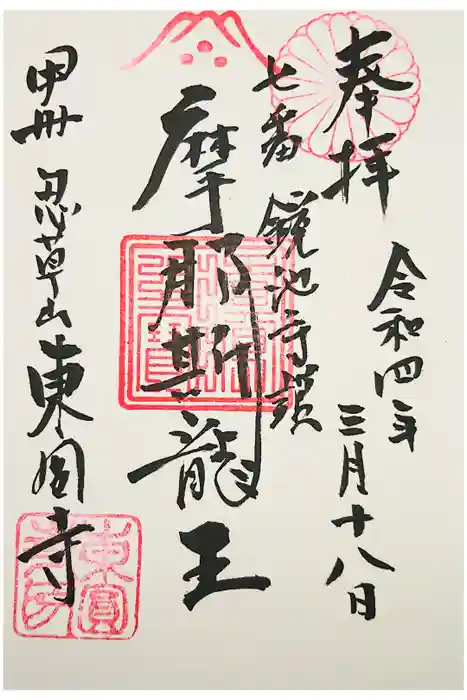 奉拝
令和四年
三月十八日
七番 鏡池守護
摩那斯龍王
甲州 忍草山 東圓寺